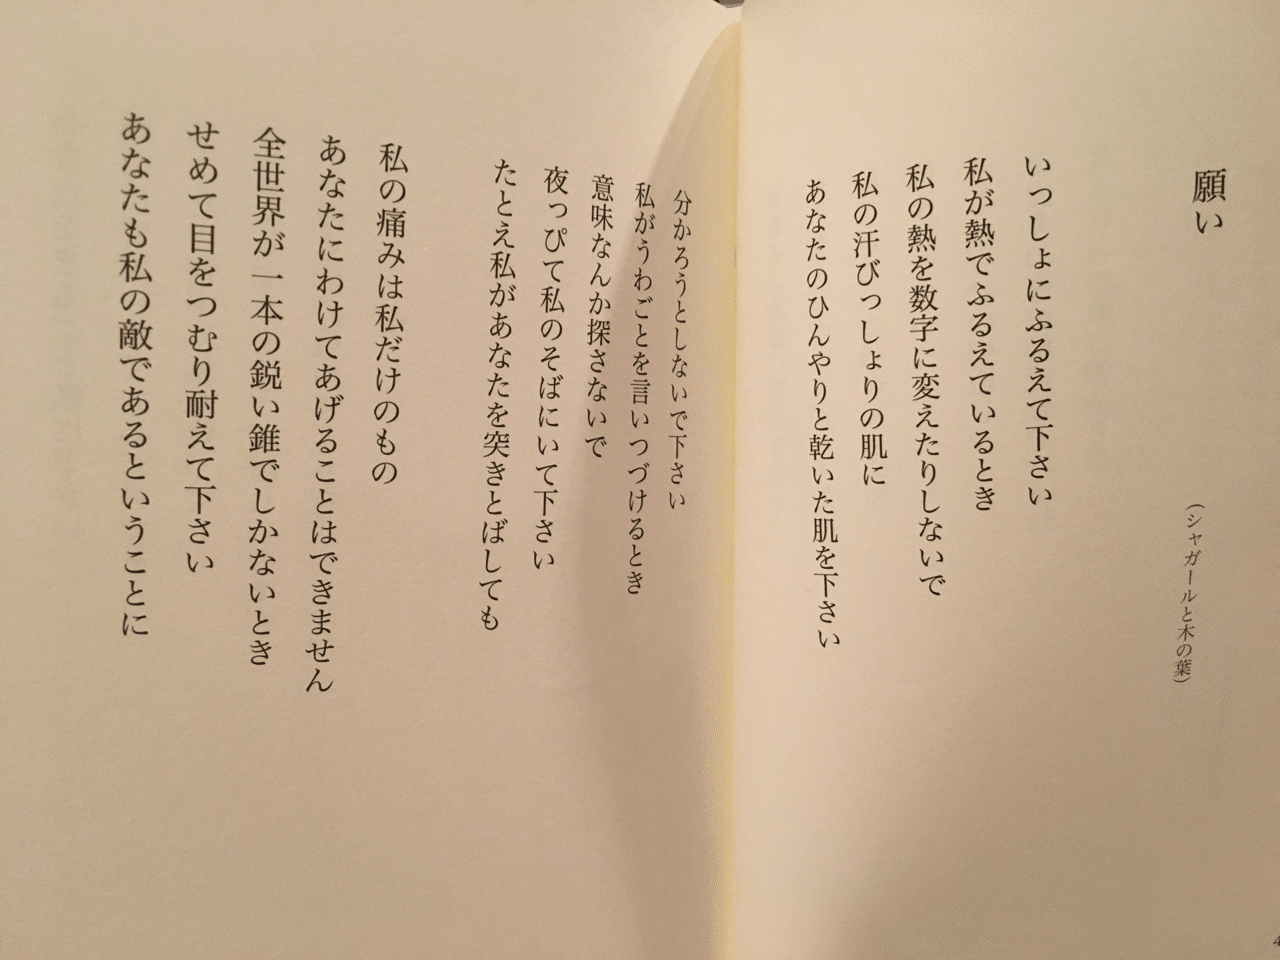 願い
（シャガールと木の葉）
いっしょにふるえて下さい
私が熱でふるえているとき
私の熱を数字に変えたりしないで
私の汗びっしょりの肌に
あなたのひんやりと乾いた肌を下さい
分かろうとしないで下さい
私がうわごとを言いつづけるとき
意味なんか探さないで
夜っぴて私のそばにいて下さい
たとえ私があなたを突きとばしても
私の痛みは私だけのもの
あなたにわけてあげることはできません
全世界が一本の鋭い錐でしかないとき
せめて目をつむり耐えて下さい
あなたも私の敵であるということに